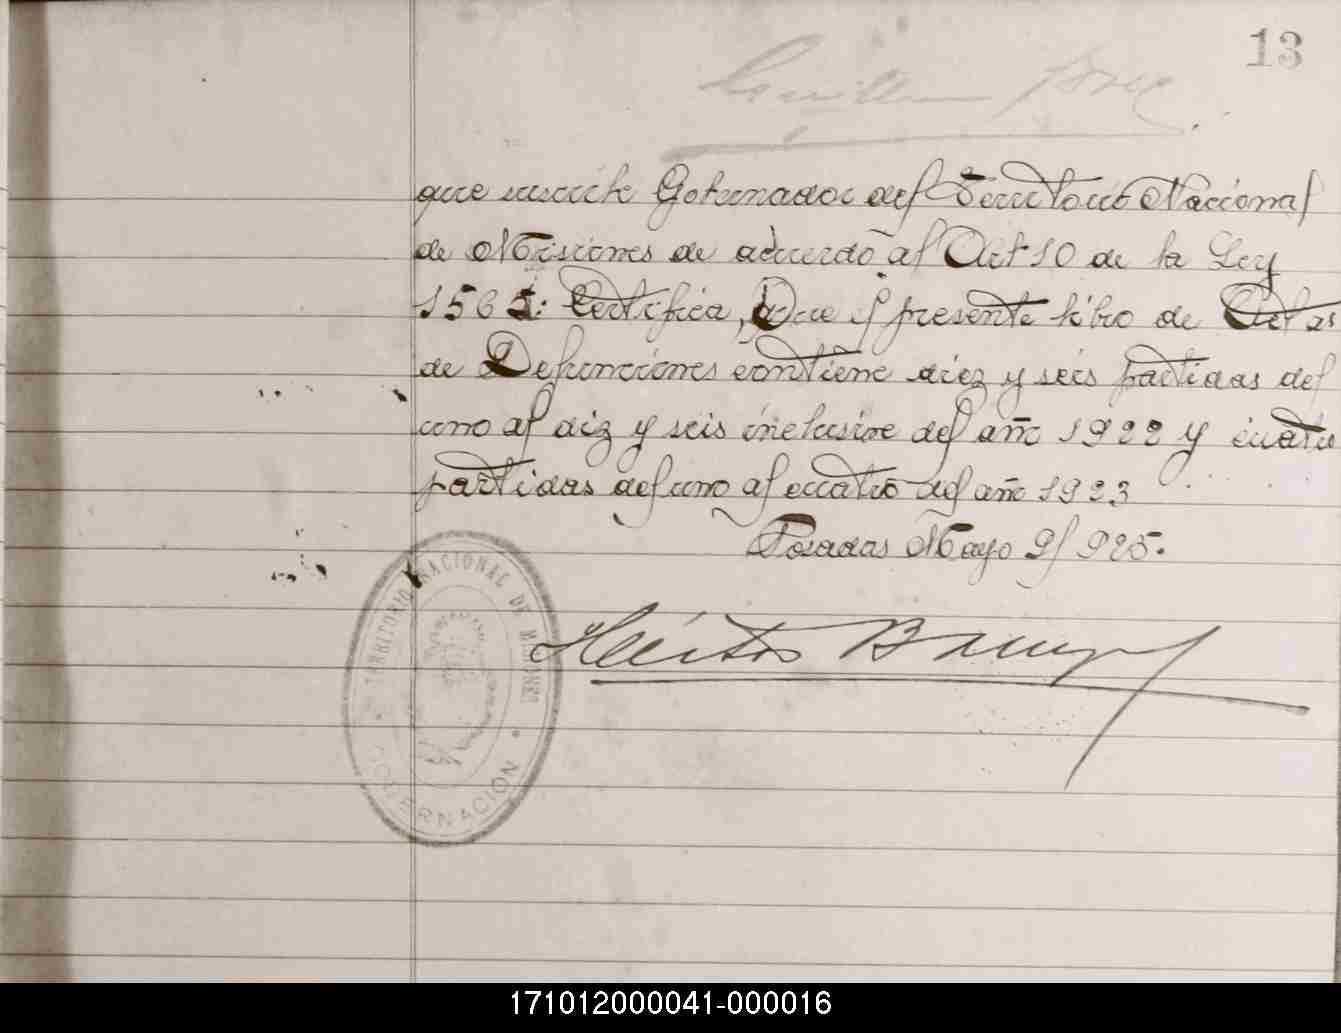 13
que suscribe Gobernador del Territorio Nacional
de Misiones de acuerdo al Art 10 de la Ley
1565: Certifica, Que el presente libro de Actas
de Defunciones contiene diez y seis partidas del
uno al diz y seis inclusive del año 1922 y cuatro
partidas del uno al cuatro del año 1923
Posadas Mayo 9/925.
Héctor
TERRITORIO NACIONAL DE MISIONES
GOBERNACION
171012000041-000016